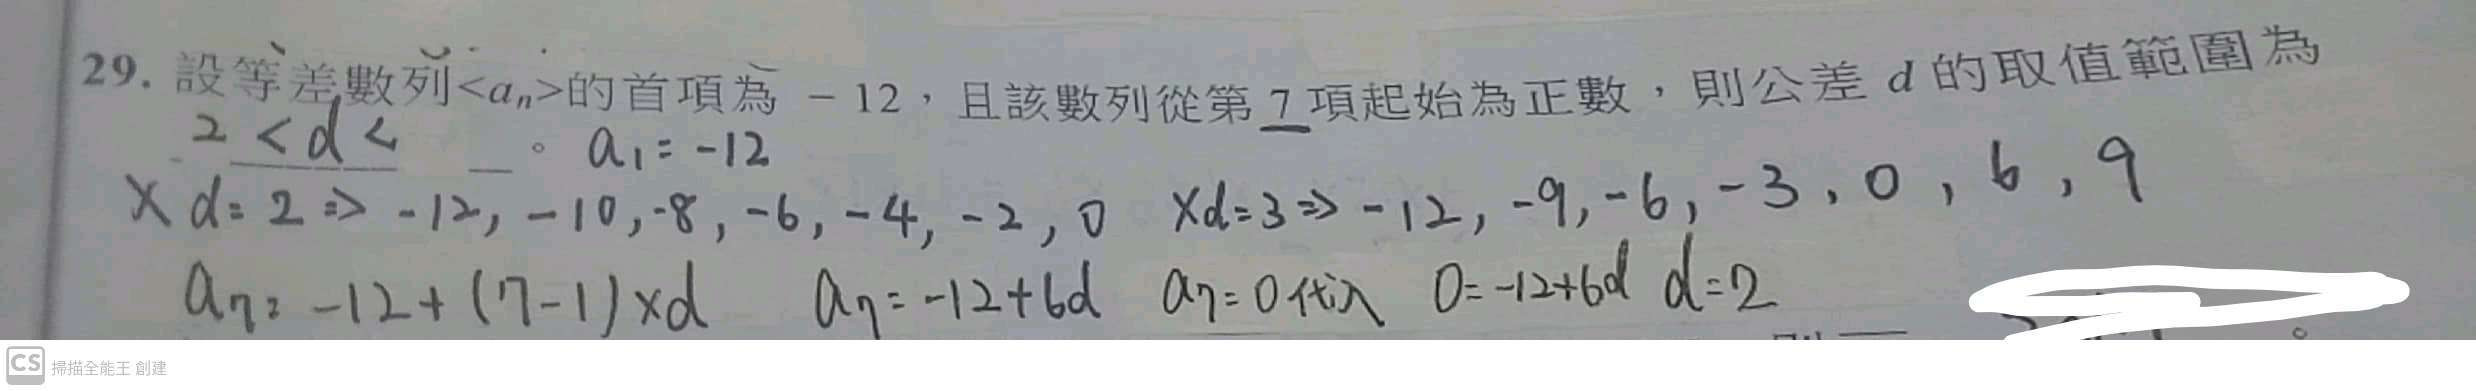 29. 設等差數列<aₙ>的首項為 -12,且該數列從第 7 項起始為正數,則公差 d 的取值範圍為
2 < d < 。 a₁ = -12
x d = 2 => -12, -10, -8, -6, -4, -2, 0 x d = 3 => -12, -9, -6, -3, 0, 6, 9
a₇ = -12 + (7-1) x d a₇ = -12 + 6d a₇ = 0 代入 0 = -12 + 6d d = 2
CS 掃描全能王 創建